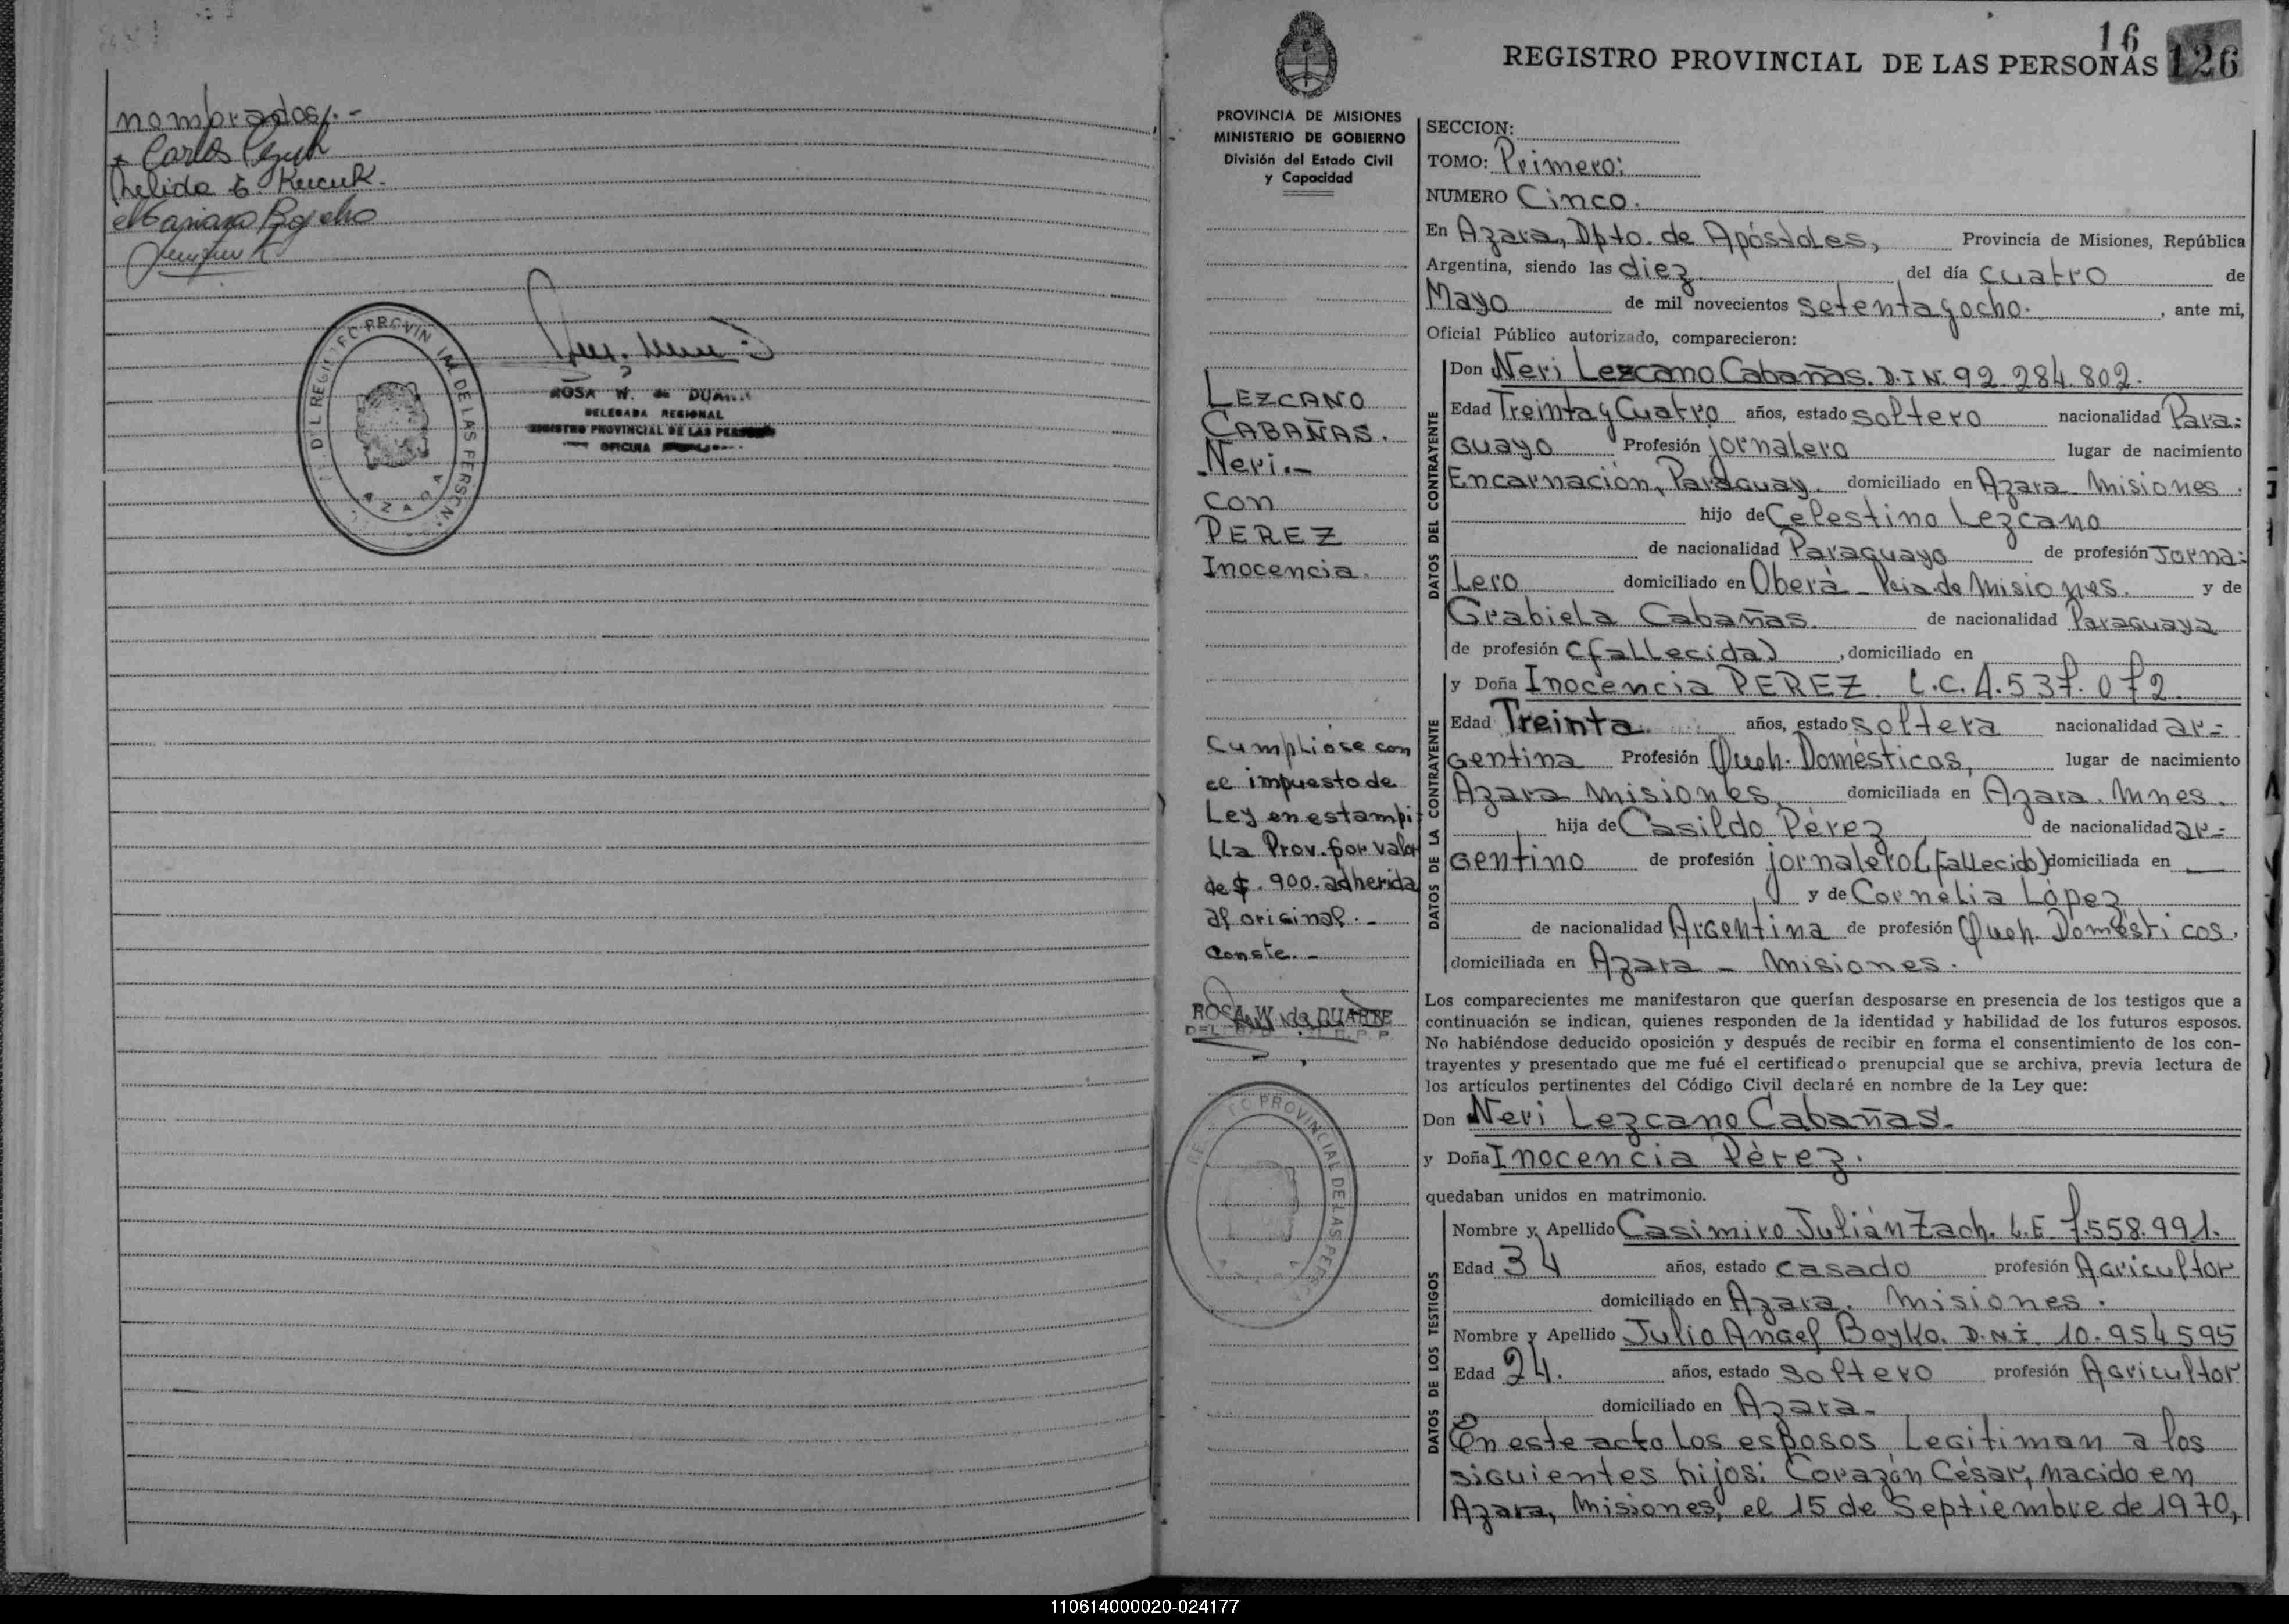 nombrados.-
Carlos
Nelida E. Kucuk.
Mariano
ROSA W. de DUARTE
DELEGADA REGIONAL
REGISTRO PROVINCIAL DE LAS PERSONAS
OFICINA
16
REGISTRO PROVINCIAL DE LAS PERSONAS 126
PROVINCIA DE MISIONES
MINISTERIO DE GOBIERNO
División del Estado Civil
y Capacidad
LEZCANO
CABAÑAS.
Neri.-
con
PEREZ
Inocencia.
Cumplióse con
el impuesto de
Ley en estampi
lla Prov. por valor
de $. 900. adherida
al original.-
Conste.-
ROSA W. de DUARTE
SECCION:
TOMO: Primero:
NUMERO Cinco.
En Azara, Dpto. de Apóstoles, Provincia de Misiones, República
Argentina, siendo las diez del día cuatro de
Mayo de mil novecientos setenta y ocho. , ante mi,
Oficial Público autorizado, comparecieron:
DATOS DEL CONTRAYENTE
Don Neri Lezcano Cabañas. D.I N. 92.284.802.
Edad Treinta y Cuatro años, estado soltero nacionalidad Para:
guayo Profesión jornalero lugar de nacimiento
Encarnación, Paraguay. domiciliado en Azara Misiones.
hijo de Celestino Lezcano
de nacionalidad Paraguayo de profesión Jorna:
lero domiciliado en Oberá - Pcia. de Misiones. y de
Grabiela Cabañas. de nacionalidad Paraguaya
de profesión (fallecida) , domiciliado en
DATOS DE LA CONTRAYENTE
y Doña Inocencia PEREZ L.C. 4.537.072.
Edad Treinta. años, estado soltera nacionalidad ar=
gentina Profesión Queh. Domésticos, lugar de nacimiento
Azara Misiones, domiciliada en Azara. Mnes.
hija de Casildo Pérez de nacionalidad ar=
gentino de profesión jornalero (fallecido) domiciliada en —
y de Cornelia López
de nacionalidad Argentina de profesión Queh. Domésticos.
domiciliada en Azara - Misiones.
Los comparecientes me manifestaron que querían desposarse en presencia de los testigos que a
continuación se indican, quienes responden de la identidad y habilidad de los futuros esposos.
No habiéndose deducido oposición y después de recibir en forma el consentimiento de los con-
trayentes y presentado que me fué el certificado prenupcial que se archiva, previa lectura de
los artículos pertinentes del Código Civil declaré en nombre de la Ley que:
Don Neri Lezcano Cabañas.
y Doña Inocencia Pérez.
quedaban unidos en matrimonio.
DATOS DE LOS TESTIGOS
Nombre y Apellido Casimiro Julián Zach. L.E 7.558.991.
Edad 34 años, estado casado profesión Agricultor
domiciliado en Azara. Misiones.
Nombre y Apellido Julio Angel Boyko. D.N.I. 10.954595
Edad 24. años, estado soltero profesión Agricultor
domiciliado en Azara-
En este acto los esposos Legitiman a los
siguientes hijos: Corazón César, nacido en
Azara, Misiones, el 15 de Septiembre de 1970,
110614000020-024177